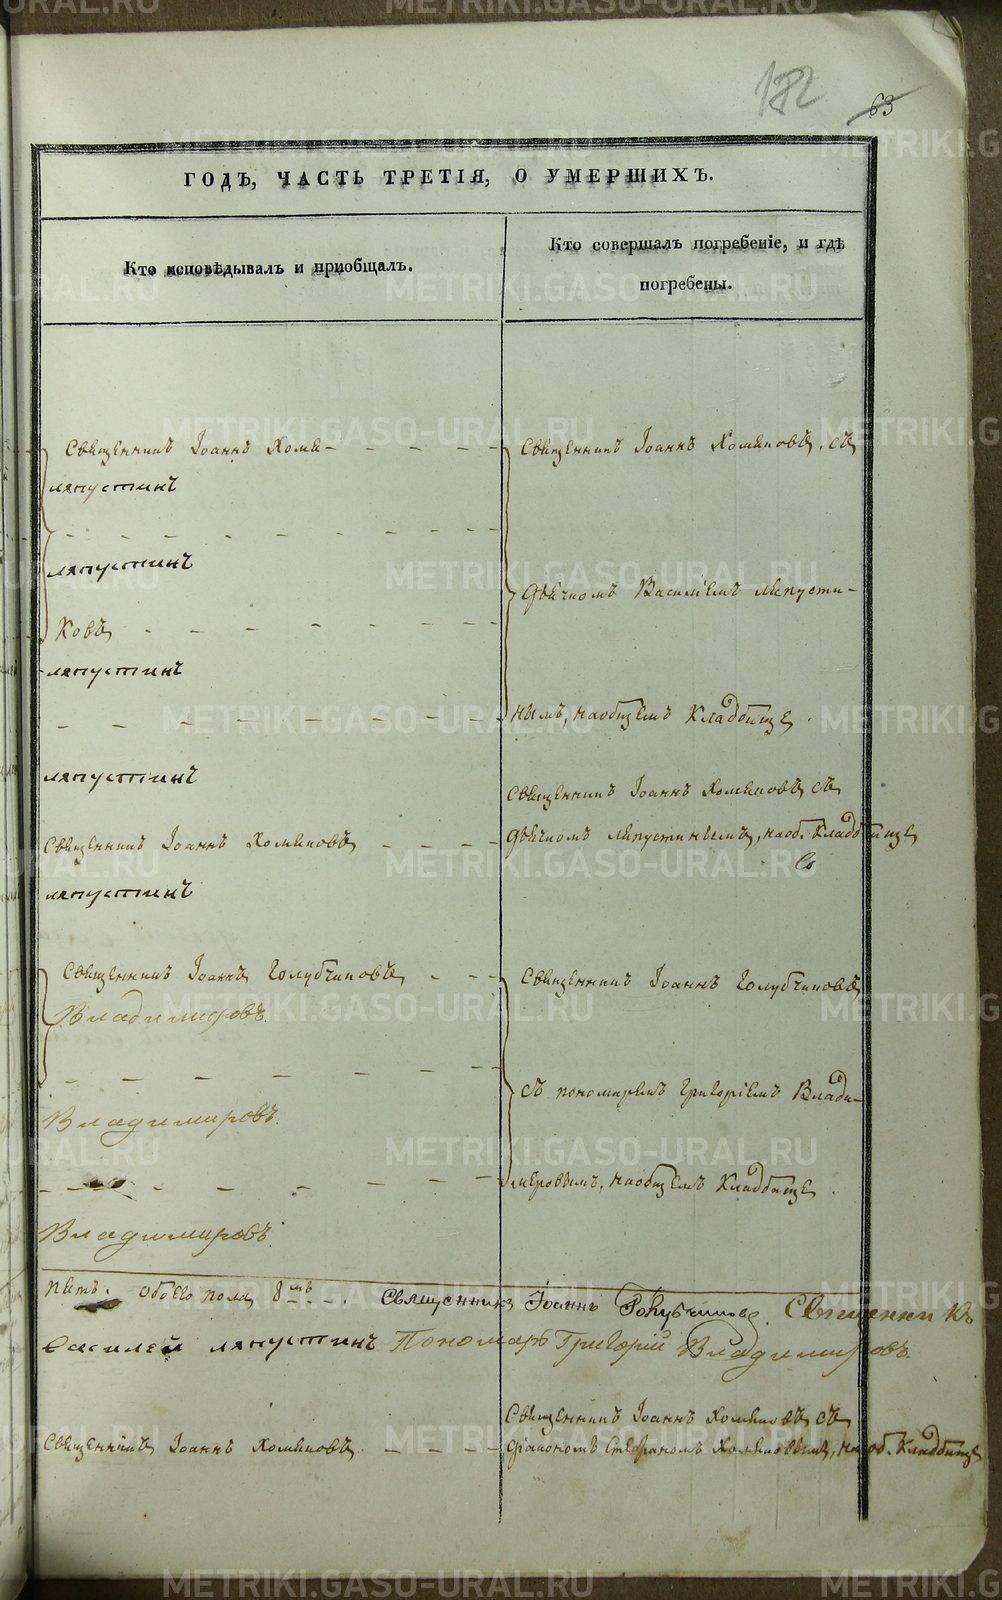 182
63
ГОДЪ, ЧАСТЬ ТРЕТІЯ, О УМЕРШИХЪ.
Кто исповѣдывалъ и пріобщалъ.
Кто совершалъ погребеніе, и гдѣ
погребены.
Священникъ Іоаннъ Хомя-
ляпустинъ
ляпустинъ
ковъ,
ляпустинъ
ляпустинъ
Священникъ Іоаннъ Хомяковъ,
ляпустинъ
Священникъ Іоаннъ Голубчиковъ,
Владимировъ.
Владимировъ.
Владимировъ.
Священникъ Іоаннъ Хомяковъ, съ
дьячкомъ Василіемъ Ляпусти-
нымъ, на общемъ кладбище.
Священникъ Іоаннъ Хомяковъ съ
дьячкомъ Ляпустинымъ, на об. кладбище
Священникъ Іоаннъ Голубчиковъ
съ пономаремъ Григоріемъ Влади-
мировымъ, на общемъ кладбище.
пять. Обоего пола, 8мъ. Священникъ Іоаннъ Голубчиковъ. Священникъ
Василей ляпустинъ Пономарь Григорій Владимировъ.
Священникъ Іоаннъ Хомяковъ,
Священникъ Іоаннъ Хомяковъ съ
діакономъ Стефаномъ Хомяковымъ, на об. кладбище
METRIKI.GASO-URAL.RU